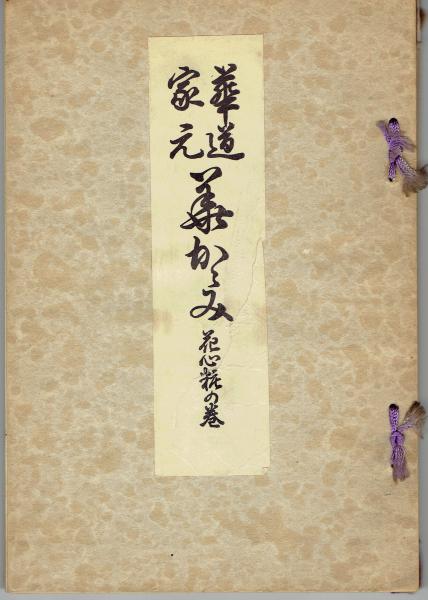 華道
家元
華かゞみ
花心粧の巻